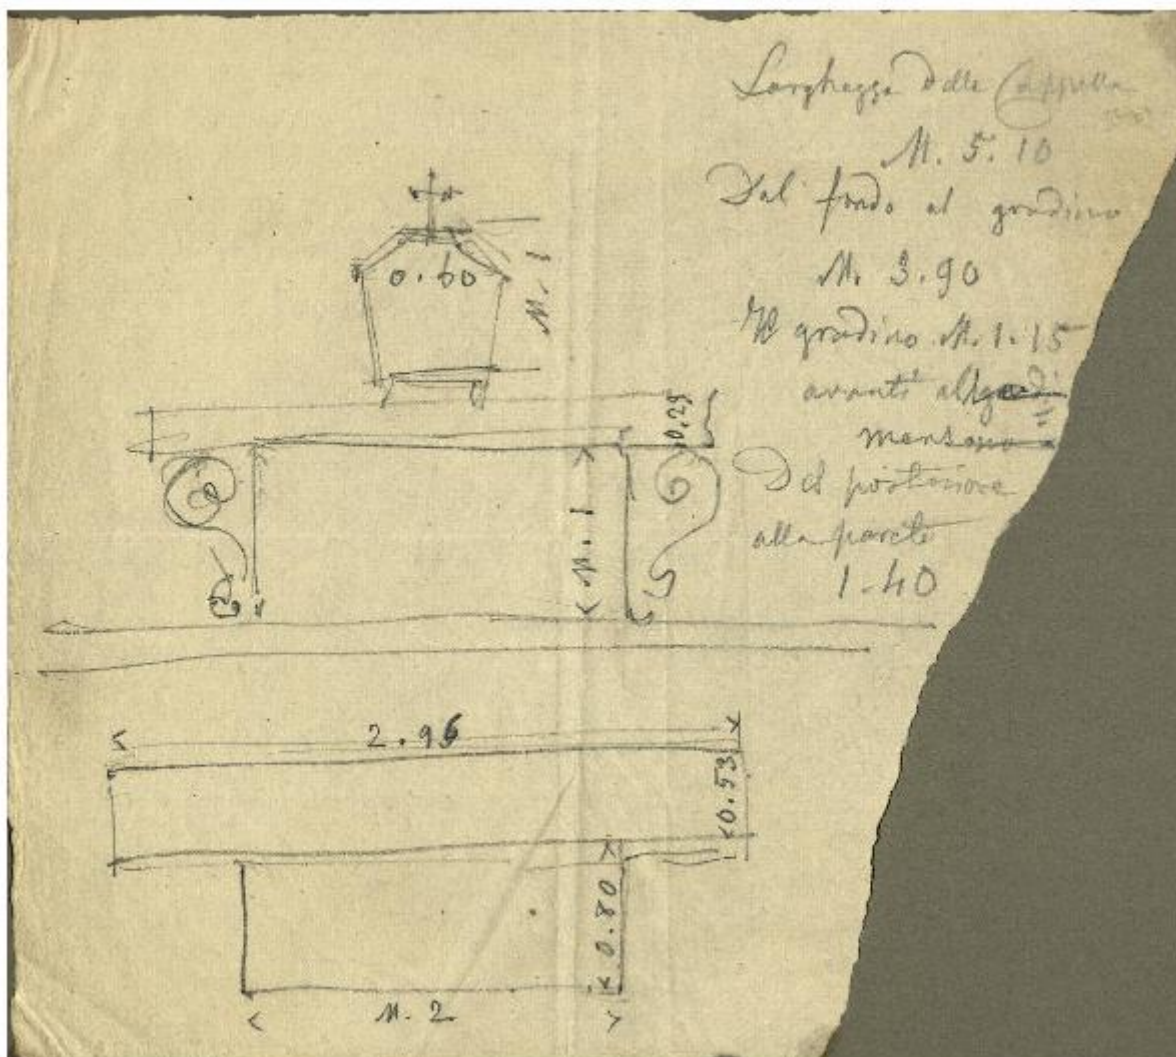 Larghezza della Cappella
M. 5.10
Dal fondo al gradino
M. 3.90
Il gradino M. 1.15
avanti
Del posteriore
alla parete
1-40
0.60
M. 1
0.29
M. 1
2.96
0.53
0.80
M. 2